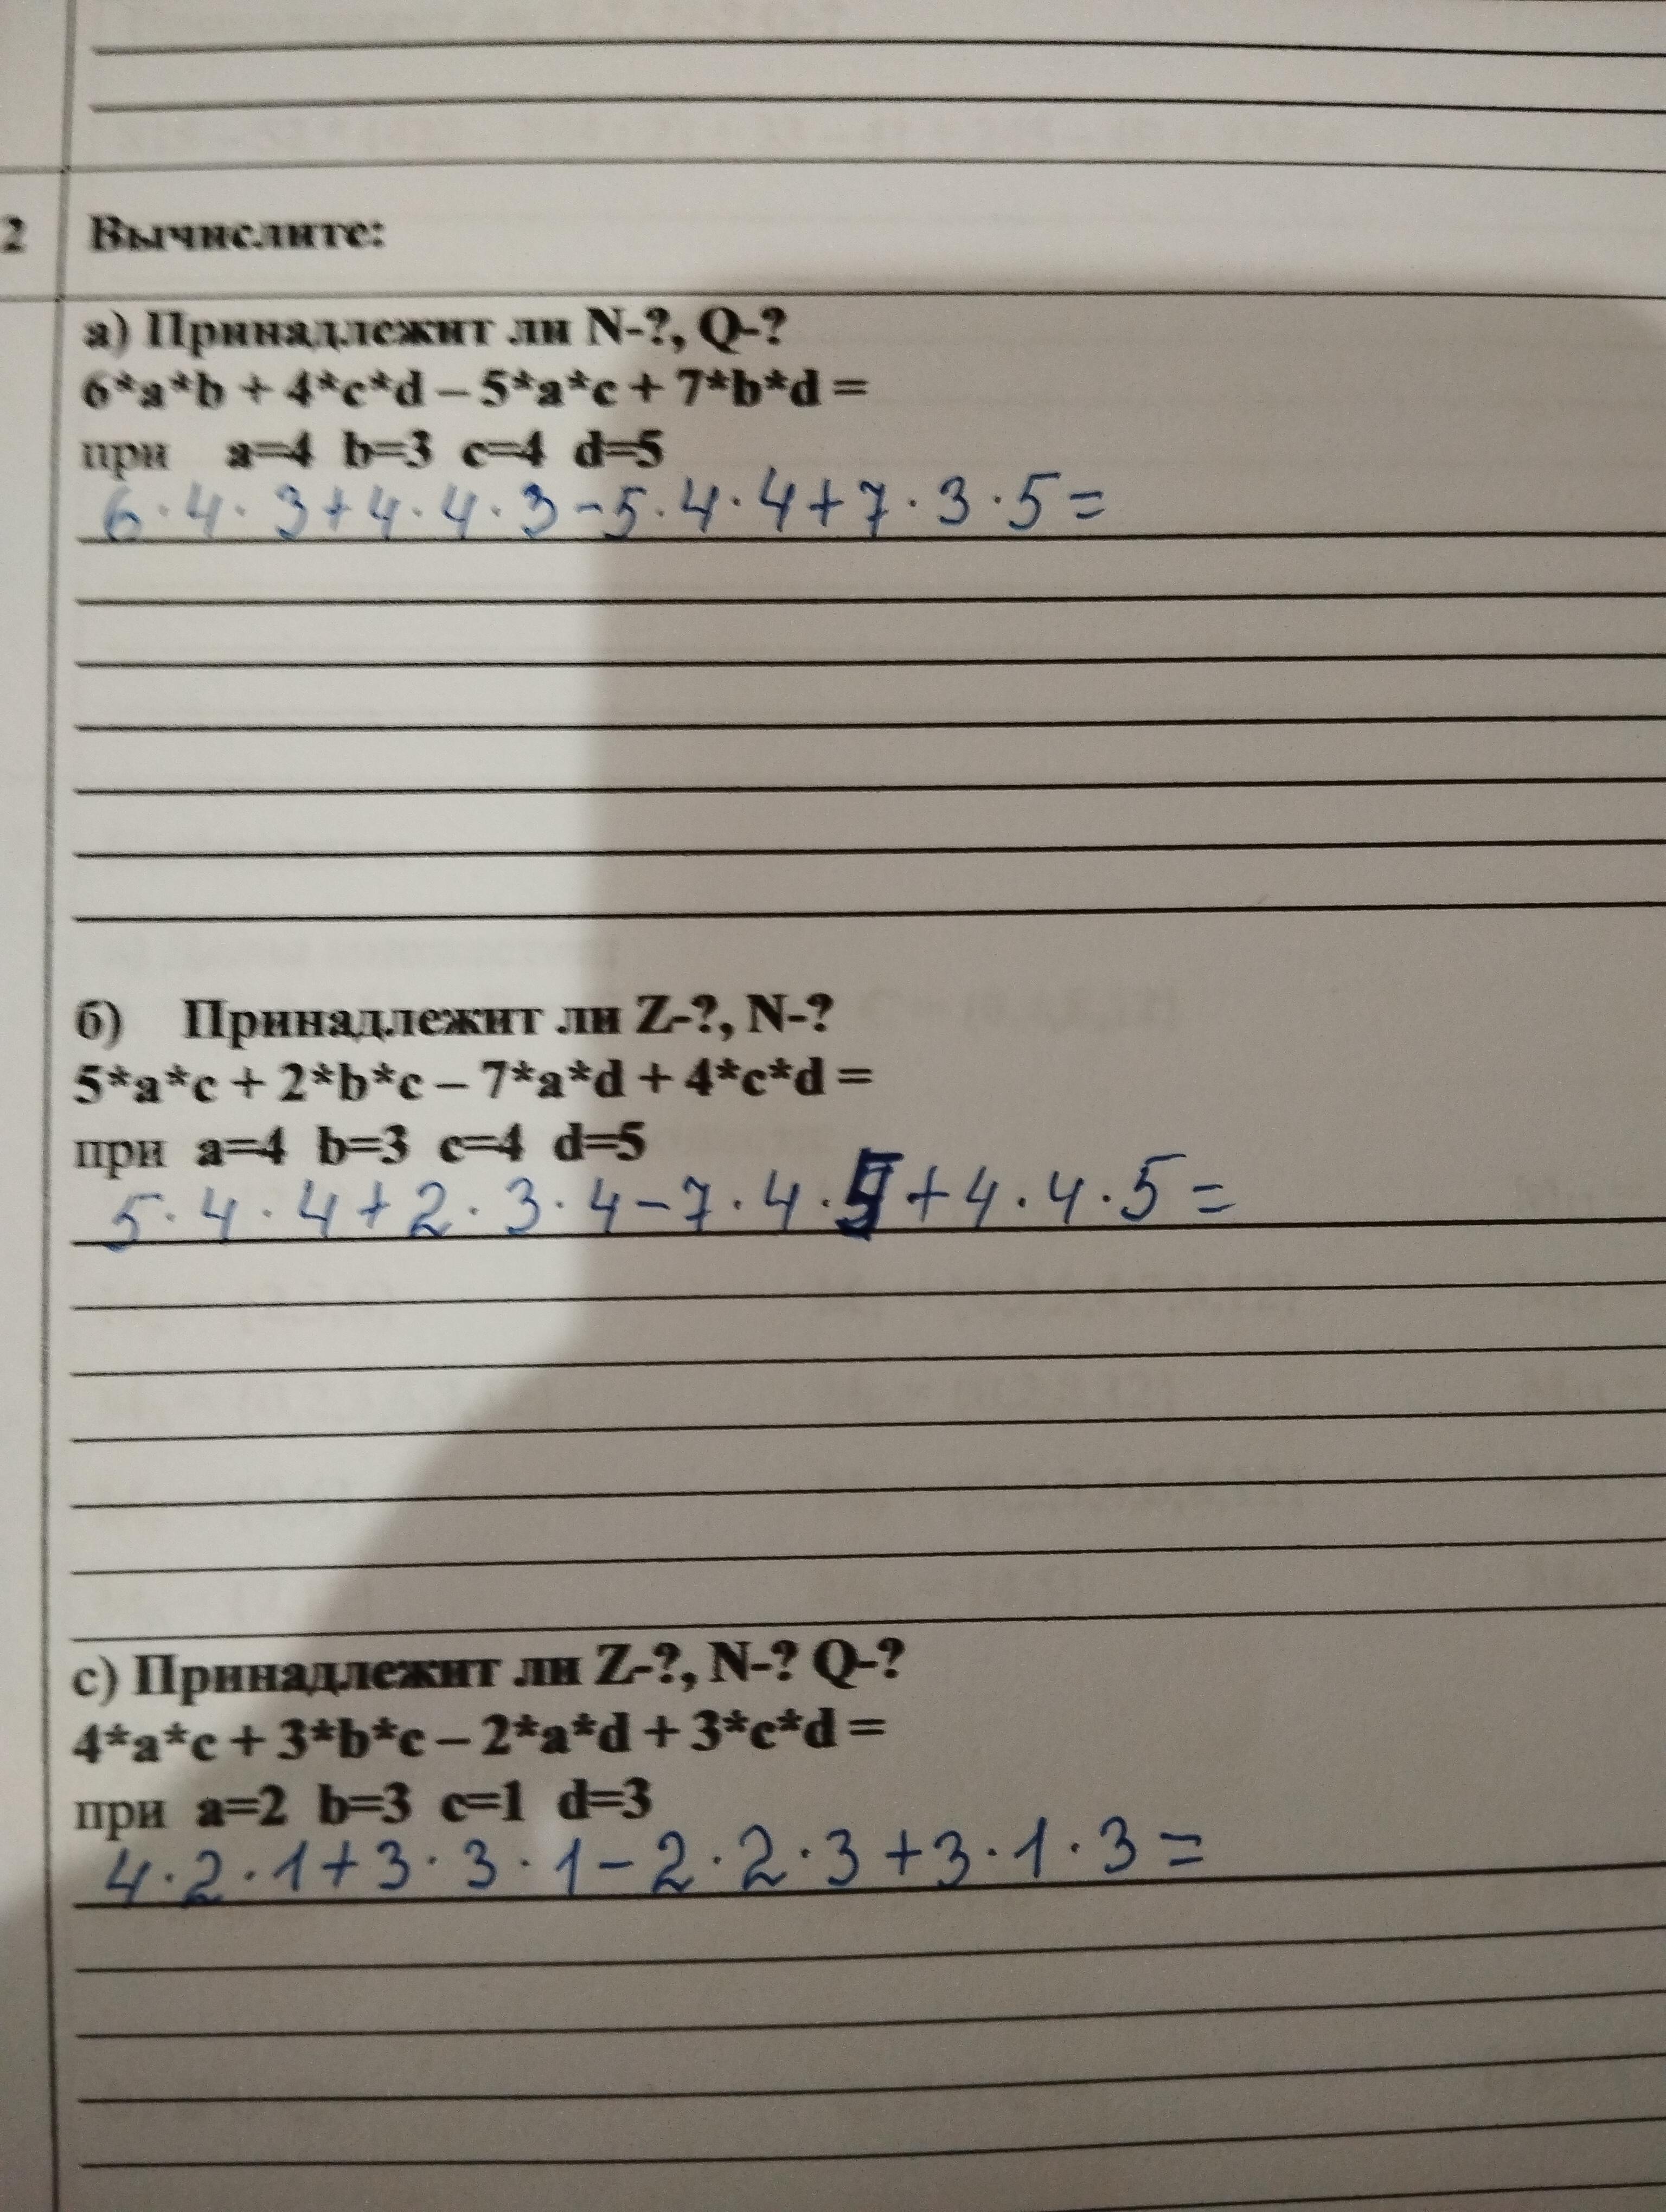 2 Вычислите:
а) Принадлежит ли N-?, Q-?
6*a*b + 4*c*d – 5*a*c + 7*b*d =
при a=4 b=3 c=4 d=5
6·4·3+4·4·3-5·4·4+7·3·5=
б) Принадлежит ли Z-?, N-?
5*a*c + 2*b*c – 7*a*d + 4*c*d =
при a=4 b=3 c=4 d=5
5·4·4+2·3·4-7·4·5+4·4·5=
с) Принадлежит ли Z-?, N-? Q-?
4*a*c + 3*b*c – 2*a*d + 3*c*d =
при a=2 b=3 c=1 d=3
4·2·1+3·3·1-2·2·3+3·1·3=